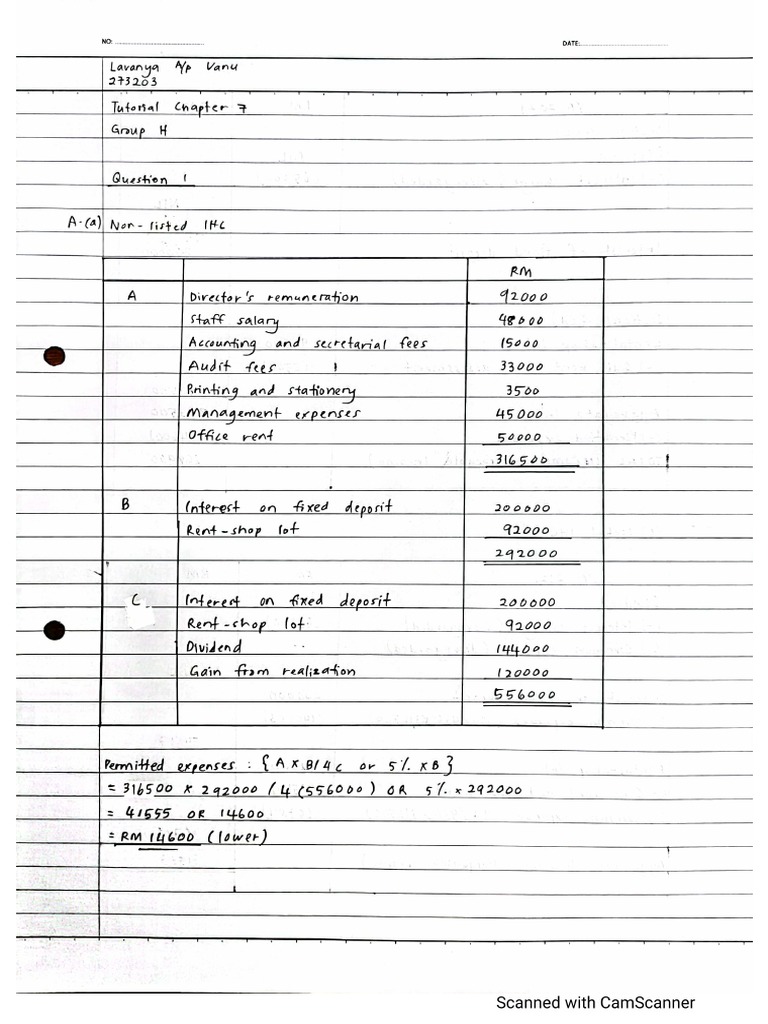 NO:
DATE:
Lavanya A/p Vanu
273203
Tutorial Chapter 7
Group H
Question 1
A.(a) Non-listed IHC
RM
A Director's remuneration 92000
Staff salary 48000
Accounting and secretarial fees 15000
Audit fees 33000
Printing and stationery 3500
Management expenses 45000
Office rent 50000
316500
B Interest on fixed deposit 200000
Rent-shop lot 92000
292000
C Interest on fixed deposit 200000
Rent-shop lot 92000
Dividend 144000
Gain from realization 120000
556000
Permitted expenses : { A x B/4C or 5% x B }
= 316500 x 292000 / 4 (556000) OR 5% x 292000
= 41555 OR 14600
= RM 14600 (lower)
Scanned with CamScanner